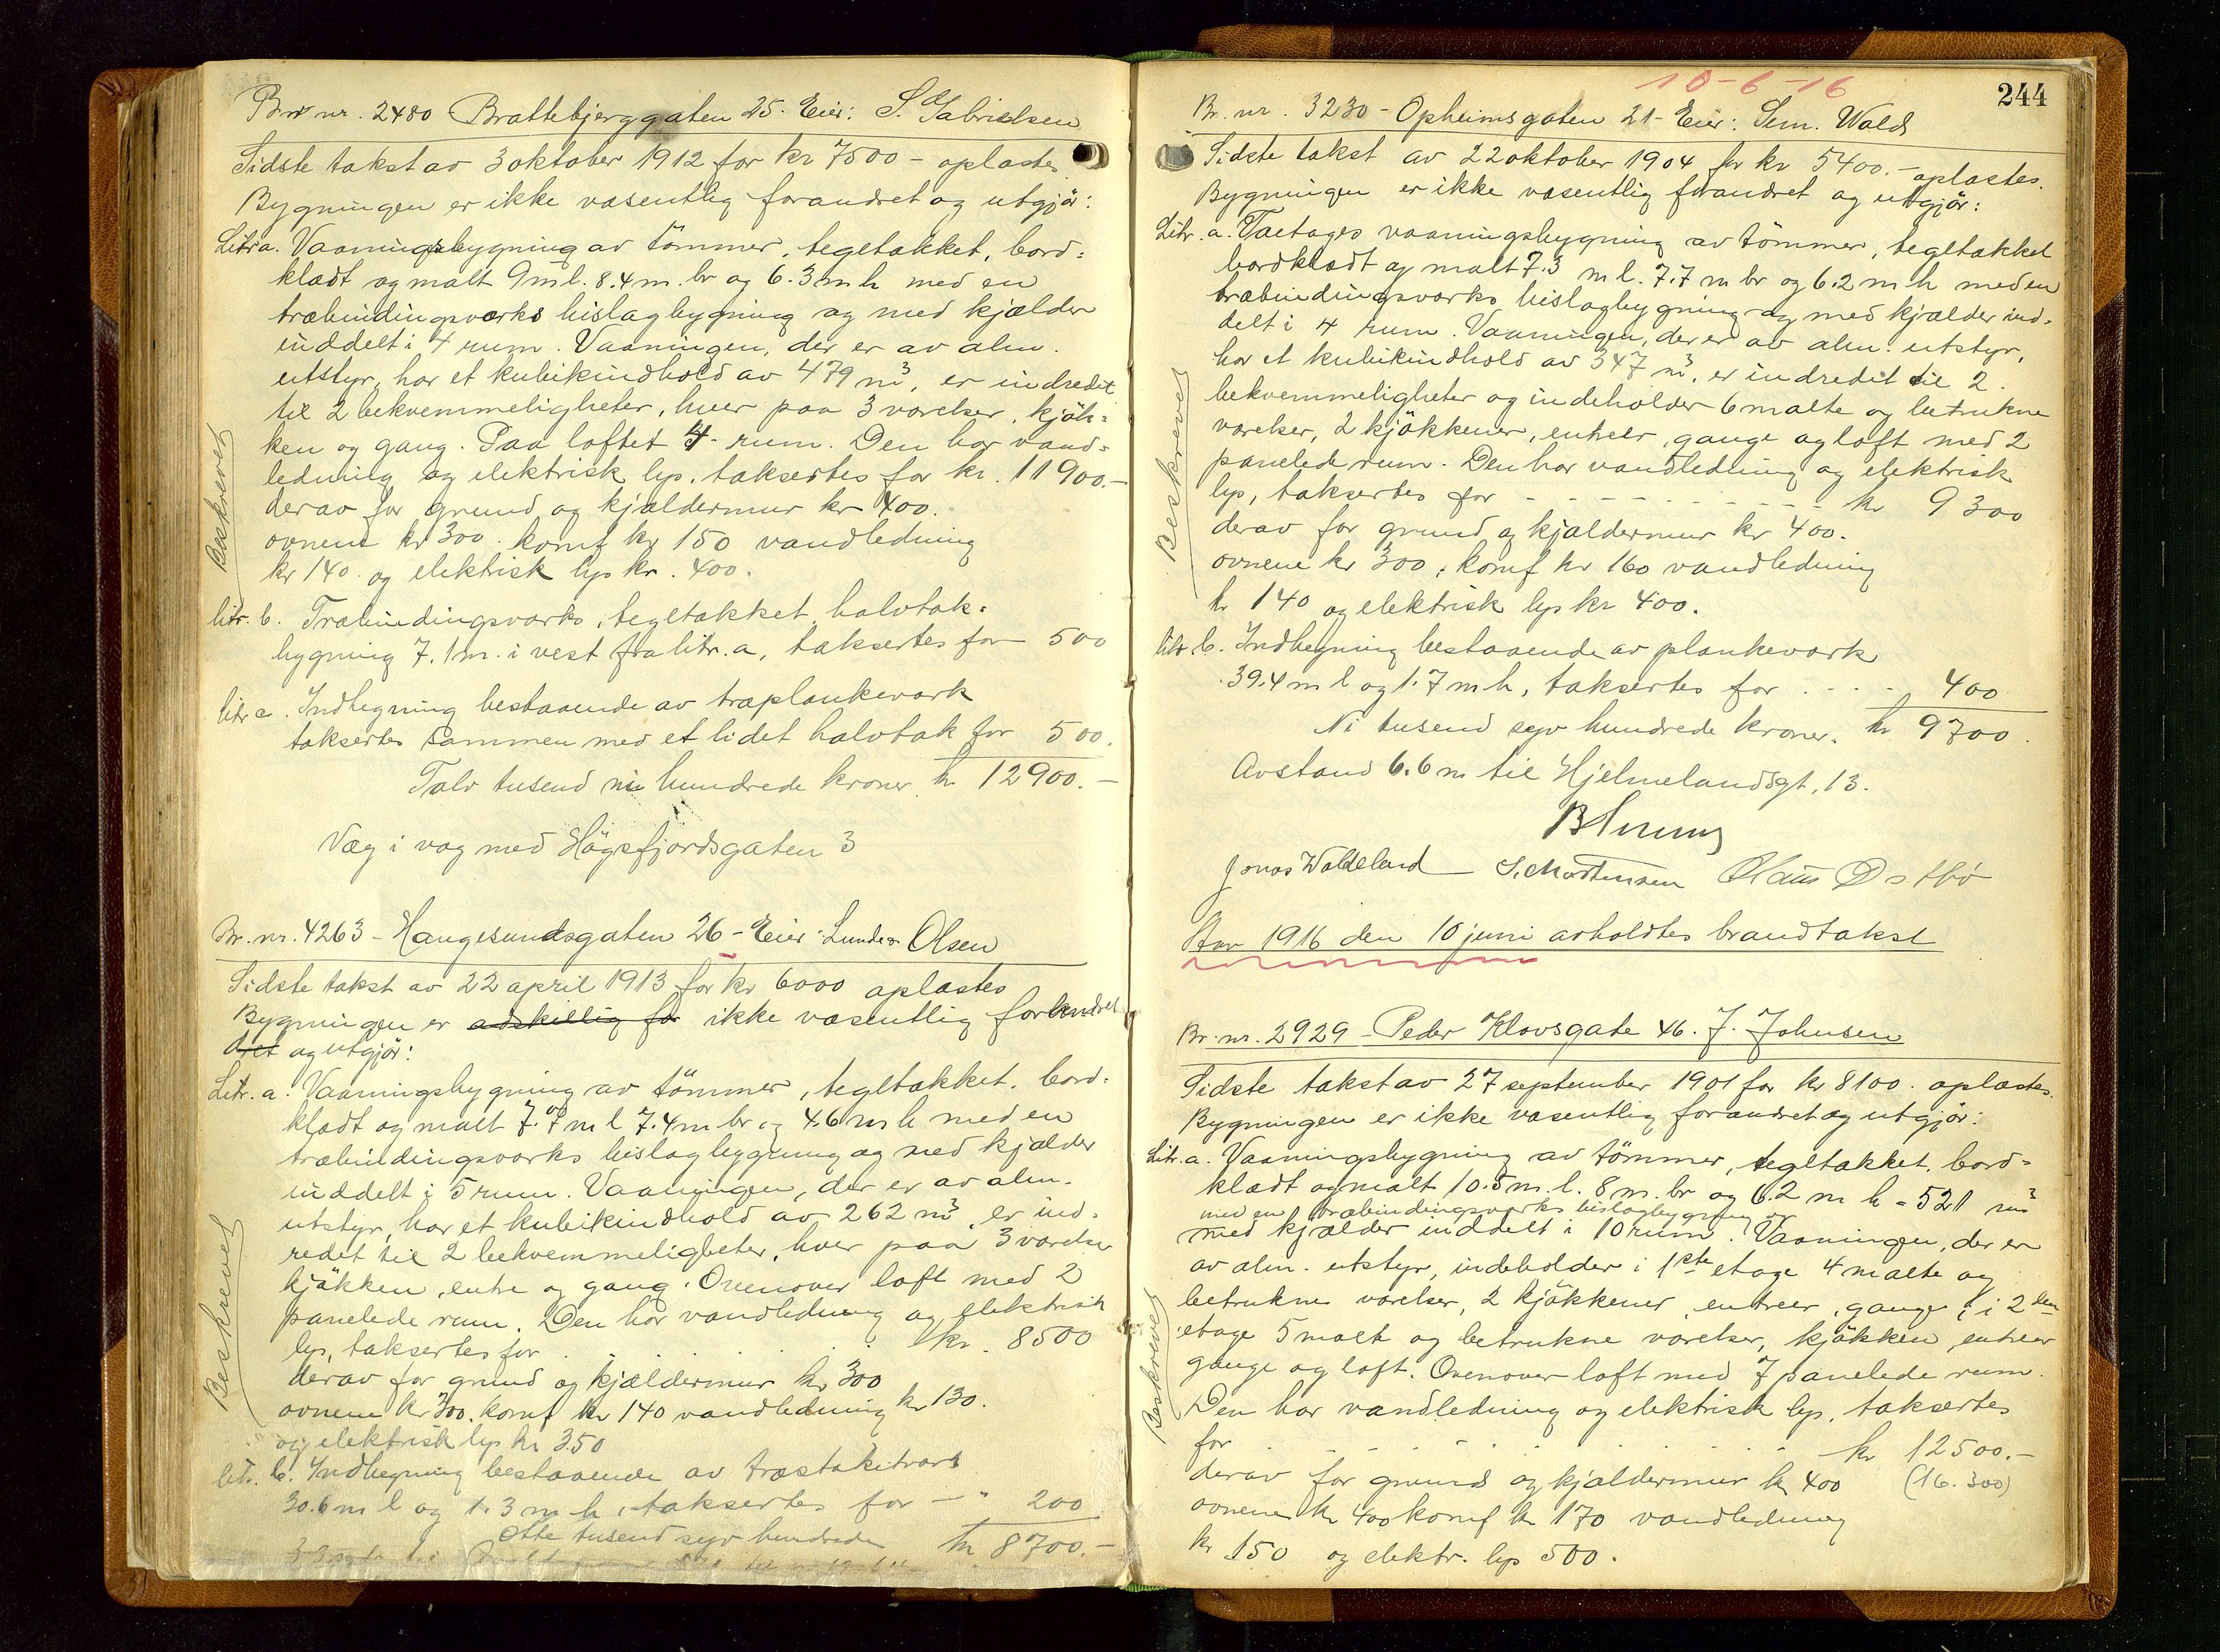 Br nr. 2480 Brattebjerggaten 25. Eier: S. Gabrielsen
Sidste takst av 3 oktober 1912 for kr 7500 - oplæstes
Bygningen er ikke væsentlig forandret og utgjör:
Litr a. Vaaningsbygning av tömmer, tegltækket, bord=
klædt og malt 9 m l. 8.4 m. br og 6.3 m h med en
træbindingsverks bislagbygning og med kjælder
inddelt i 4 rum. Vaaningen, der er av alm.
utstyr, har et kubikindhold av 479 m³, er indredet
til 2 bekvemmeligheter, hver paa 3 værelser, kjök=
ken og gang. Paa loftet 4 rum. Den har vand=
ledning og elektrisk lys, taksertes for kr. 11900.-
derav for grund og kjældermur kr 400.
ovnene kr 300. komf kr 150 vandledning
kr 140 og elektrisk lys kr. 400.
litr. b. Træbindingsværks, tegltækket halvtak=
bygning 7.1 m. i vest fra litr. a, taksertes for 500
litr c. Indhegning bestaaende av træplankeværk
taksertes sammen med et lidet halvtak for 500.
Tolv tusend ni hundrede kroner kr 12900.-
Væg i væg med Högsfjordsgaten 3
Beskrevet
Br. nr. 4263 - Haugesundsgaten 26 - Eier: Olsen
Sidste takst av 22 april 1913 for kr 6000 oplæstes
Bygningen er adskillig for ikke væsentlig forandret
dret og utgjör:
Litr. a. Vaaningsbygning av tömmer, tegltækket, bord=
klædt og malt 7.7 m l 7.4 m br og 4.6 m h med en
træbindingsværks bislagbygning og med kjælder
inddelt i 5 rum. Vaaningen, der er av alm.
utstyr, har et kubikindhold av 262 m³, er ind=
redet til 2 bekvemmeligheter, hver paa 3 værelser
kjökken, entre og gang. Ovenover loft med 2
panelede rum. Den har vandledning og elektrisk
lys, taksertes for . . . . . . kr. 8500
derav for grund og kjældermur kr 300
ovnene kr 300, komf kr 140 vandledning kr 130.
og elektrisk lys kr 350
litr. b. Indhegning bestaaende av træstakitværk
30.6 m l og 1.3 m h, taksertes for - " 200
Otte tusend syv hundrede kr 8700.-
Beskrevet
10-6-16
244
Br. nr. 3230 - Opheimsgaten 21 - Eier: Sem. Wald
Sidste takst av 22 oktober 1904 for kr 5400.- oplæstes.
Bygningen er ikke væsentlig forandret og utgjör:
Litr. a. Toetages vaaningsbygning av tömmer, tegltækket
bordklædt og malt 7.3 m l. 7.7 m br og 6.2 m h med en
træbindingsværks bislagbygning og med kjælder ind=
delt i 4 rum. Vaaningen, der er av alm. utstyr,
har et kubikindhold av 347 m³, er indredet til 2
bekvemmeligheter og indeholder 6 malte og betrukne
værelser, 2 kjökkener, entreer, gange og loft med 2
panelede rum. Den har vandledning og elektrisk
lys, taksertes for - - - - - - - - - kr 9300
derav for grund og kjældermur kr 400.
ovnene kr 300, komf kr 160 vandledning
kr 140 og elektrisk lys kr 400.
litr b. Indhegning bestaaende av plankeværk
39.4 m l og 1.7 m h, taksertes for . - - - 400
Ni tusend syv hundrede kroner. kr 9700.
Avstand 6.6 m til Hjelmelandsgt. 13.
Beskrevet
Jonas Waldeland S. Mortensen
Aar 1916 den 10 juni avholdtes brandtakst
Br. nr. 2929 - Peder Klovsgate 46. J. Johnsen
Sidste takst av 27 september 1901 for kr 8100. oplæstes.
Bygningen er ikke væsentlig forandret og utgjör:
Litr. a. Vaaningsbygning av tömmer, tegltækket, bord=
klædt og malt 10.5 m. l. 8 m. br og 6.2 m h = 521 m³
med en træbindingsværks bislagbygning og
med kjælder inddelt i 10 rum. Vaaningen, der er
av alm. utstyr, indeholder i 1ste etage 4 malte og
betrukne værelser, 2 kjökkener, entreer, gange; i 2den
etage 5 malte og betrukne værelser, kjökken, entreer
gange og loft. Ovenover loft med 7 panelede rum.
Den har vandledning og elektrisk lys, taksertes
for . - - - - - . . . . . - kr 12500.-
derav for grund og kjældermur kr 400 (16.300)
ovnene kr 400 komf kr 170 vandledning
kr 150 og elektr. lys 500.
Beskrevet